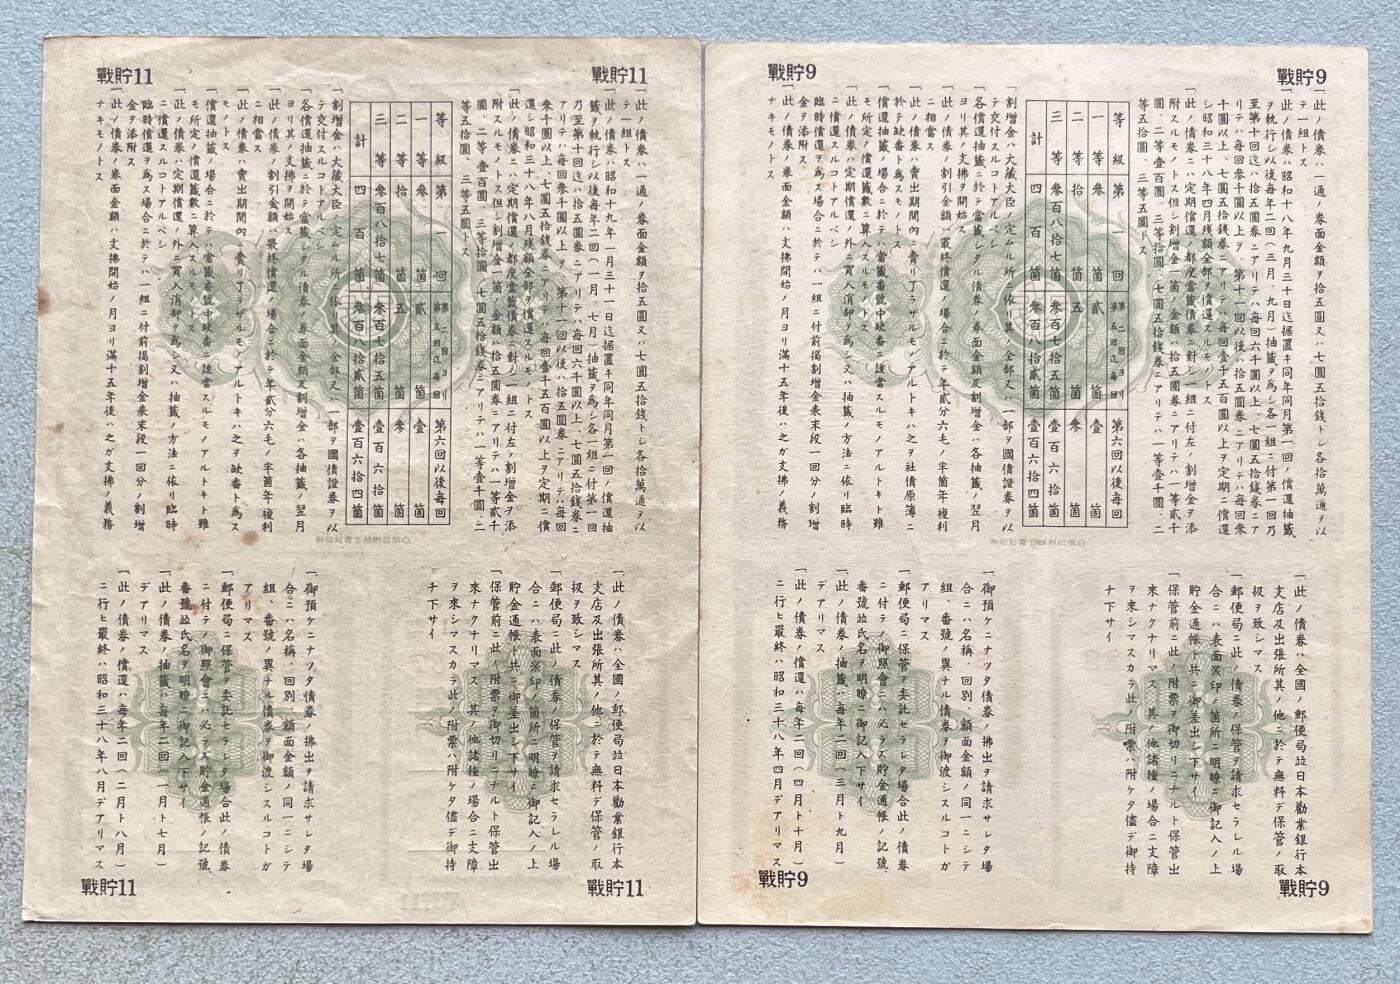 戰貯11
戰貯11
一、此ノ債券ハ一通ノ券面金額ヲ拾五圓又ハ七圓五拾錢トシ各拾萬通ヲ以
テ一組トス
一、此ノ債券ハ昭和十九年一月三十一日迄据置キ同年同月第一回ノ償還抽
籤ヲ執行シ以後每年二回（一月、七月）抽籤ヲ爲シ各一組ニ付第一回
乃至第十回迄ハ拾五圓券ニアリテハ每回六千圓以上、七圓五拾錢券ニ
アリテハ每回參千圓以上ヲ、第十一回以後ハ拾五圓券ニアリテハ每回
參千圓以上、七圓五拾錢券ニアリテハ每回壹千五百圓以上ヲ定期ニ償
還シ昭和三十八年八月殘額全部ヲ償還スルモノトス
一、此ノ債券ニハ定期償還ノ都度當籤債券ニ對シ一組ニ付左ノ割增金ヲ添
附スルモノトス但シ割增金一箇ノ金額ハ拾五圓券ニアリテハ一等貳千
圓、二等壹百圓、三等拾圓、七圓五拾錢券ニアリテハ一等壹千圓、二
等五拾圓、三等五圓トス
等級 第一回 第二回ヨリ第五回迄每回 第六回以後每回
一等 參箇 貳箇 壹箇
二等 拾箇 五箇 參箇
三等 參百八拾七箇 參百七拾五箇 壹百六拾箇
計 四百箇 參百八拾貳箇 壹百六拾四箇
一、割增金ハ大藏大臣ノ定ムル所ニ依リ其ノ全部又ハ一部ヲ國債證券ヲ以
テ交付スルコトアルベシ
一、各償還抽籤ニ於テ當籤シタル債券ノ券面金額及割增金ハ各抽籤ノ翌月
ヨリ其ノ支拂ヲ開始ス
一、此ノ債券ノ割引金額ハ最終償還ノ場合ニ於テ年貳分六毛ノ半箇年複利
ニ相當ス
一、此ノ債券ハ賣出期間內ニ賣リ了ラザルモノアルトキハ之ヲ缺番ト爲ス
モノトス
一、償還抽籤ノ場合ニ於テハ當籤番號中缺番ニ該當スルモノアルトキト雖
モ所定ノ償還籤數ニ算入スルモノトス
一、此ノ債券ハ定期償還ノ外ニ買入消却ヲ爲シ又ハ抽籤ノ方法ニ依リ臨時
ニ償還スルコトアルベシ
臨時償還ヲ爲ス場合ニ於テハ一組ニ付前揭割增金表末段一回分ノ割增
金ヲ添附ス
一、此ノ債券ノ券面金額ハ支拂開始ノ月ヨリ滿十五年後ハ之ガ支拂ノ義務
ナキモノトス
一、此ノ債券ハ全國ノ郵便局竝日本勸業銀行本
支店及出張所其ノ他ニ於テ無料デ保管ノ取
扱ヲ致シマス
一、郵便局ニ此ノ債券ノ保管ヲ請求セラレル場
合ニハ表面※印ノ箇所ニ明瞭ニ御記入ノ上
貯金通帳ト共ニ御差出シ下サイ
一、保管前ニ此ノ附票ヲ御切リニナルト保管出
來ナクナリマス、其ノ他諸種ノ場合ニ支障
ヲ來シマスカラ此ノ附票ハ附ケタ儘デ御持
チ下サイ
一、御預ケニナツタ債券ノ拂出ヲ請求サレタ場
合ニハ名稱、回別、額面金額ノ同一ニシテ
組、番號ノ異ナル債券ヲ御渡シスルコトガ
アリマス
一、郵便局ニ保管ヲ委託セラレタ場合此ノ債券
ニ付テノ御照會ニハ必ラズ貯金通帳ノ記號
番號竝氏名ヲ明瞭ニ御記入下サイ
一、此ノ債券ノ抽籤ハ每年二回（一月ト七月）
デアリマス
一、此ノ債券ノ償還ハ每年二回（二月ト八月）
ニ行ヒ最終ハ昭和三十八年八月デアリマス
戰貯11
戰貯11
戰貯9
戰貯9
一、此ノ債券ハ一通ノ券面金額ヲ拾五圓又ハ七圓五拾錢トシ各拾萬通ヲ以
テ一組トス
一、此ノ債券ハ昭和十八年九月三十日迄据置キ同年同月第一回ノ償還抽籤
ヲ執行シ以後每年二回（三月、九月）抽籤ヲ爲シ各一組ニ付第一回乃
至第十回迄ハ拾五圓券ニアリテハ每回六千圓以上、七圓五拾錢券ニア
リテハ每回參千圓以上ヲ、第十一回以後ハ拾五圓券ニアリテハ每回參
千圓以上、七圓五拾錢券ニアリテハ每回壹千五百圓以上ヲ定期ニ償還
シ昭和三十八年四月殘額全部ヲ償還スルモノトス
一、此ノ債券ニハ定期償還ノ都度當籤債券ニ對シ一組ニ付左ノ割增金ヲ添
附スルモノトス但シ割增金一箇ノ金額ハ拾五圓券ニアリテハ一等貳千
圓、二等壹百圓、三等拾圓、七圓五拾錢券ニアリテハ一等壹千圓、二
等五拾圓、三等五圓トス
等級 第一回 第二回ヨリ第五回迄每回 第六回以後每回
一等 參箇 貳箇 壹箇
二等 拾箇 五箇 參箇
三等 參百八拾七箇 參百七拾五箇 壹百六拾箇
計 四百箇 參百八拾貳箇 壹百六拾四箇
一、割增金ハ大藏大臣ノ定ムル所ニ依リ其ノ全部又ハ一部ヲ國債證券ヲ以
テ交付スルコトアルベシ
一、各償還抽籤ニ於テ當籤シタル債券ノ券面金額及割增金ハ各抽籤ノ翌月
ヨリ其ノ支拂ヲ開始ス
一、此ノ債券ノ割引金額ハ最終償還ノ場合ニ於テ年貳分六毛ノ半箇年複利
ニ相當ス
一、此ノ債券ハ賣出期間內ニ賣リ了ラザルモノアルトキハ之ヲ社債原簿ニ
於テ缺番ト爲スモノトス
一、償還抽籤ノ場合ニ於テハ當籤番號中缺番ニ該當スルモノアルトキト雖
モ所定ノ償還籤數ニ算入スルモノトス
一、此ノ債券ハ定期償還ノ外ニ買入消却ヲ爲シ又ハ抽籤ノ方法ニ依リ臨時
ニ償還スルコトアルベシ
臨時償還ヲ爲ス場合ニ於テハ一組ニ付前揭割增金表末段一回分ノ割增
金ヲ添附ス
一、此ノ債券ノ券面金額ハ支拂開始ノ月ヨリ滿十五年後ハ之ガ支拂ノ義務
ナキモノトス
一、此ノ債券ハ全國ノ郵便局竝日本勸業銀行本
支店及出張所其ノ他ニ於テ無料デ保管ノ取
扱ヲ致シマス
一、郵便局ニ此ノ債券ノ保管ヲ請求セラレル場
合ニハ表面※印ノ箇所ニ明瞭ニ御記入ノ上
貯金通帳ト共ニ御差出シ下サイ
一、保管前ニ此ノ附票ヲ御切リニナルト保管出
來ナクナリマス、其ノ他諸種ノ場合ニ支障
ヲ來シマスカラ此ノ附票ハ附ケタ儘デ御持
チ下サイ
一、御預ケニナツタ債券ノ拂出ヲ請求サレタ場
合ニハ名稱、回別、額面金額ノ同一ニシテ
組、番號ノ異ナル債券ヲ御渡シスルコトガ
アリマス
一、郵便局ニ保管ヲ委託セラレタ場合此ノ債券
ニ付テノ御照會ニハ必ラズ貯金通帳ノ記號
番號竝氏名ヲ明瞭ニ御記入下サイ
一、此ノ債券ノ抽籤ハ每年二回（三月ト九月）
デアリマス
一、此ノ債券ノ償還ハ每年二回（四月ト十月）
ニ行ヒ最終ハ昭和三十八年四月デアリマス
戰貯9
戰貯9